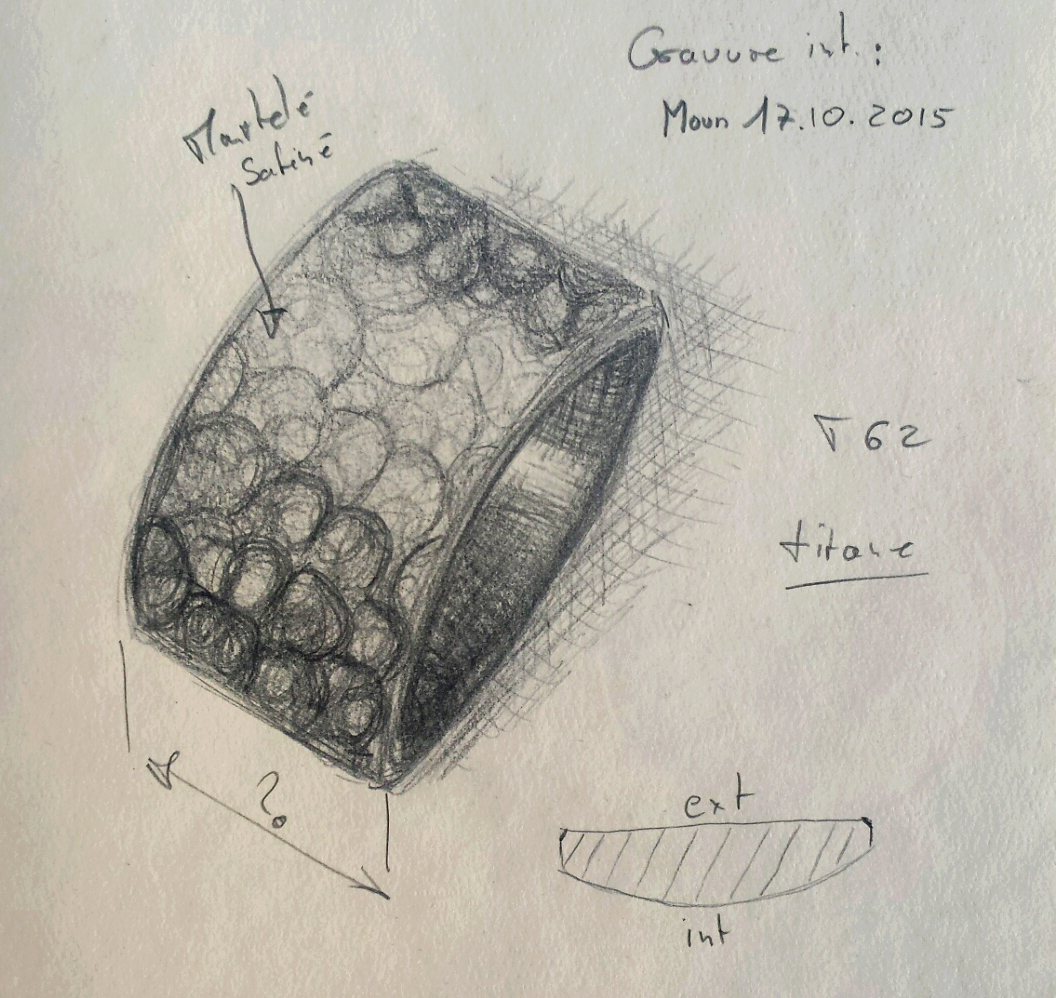 Gravure int. :
Moun 17.10.2015
Martelé
Satiné
T 62
titane
?
ext
int